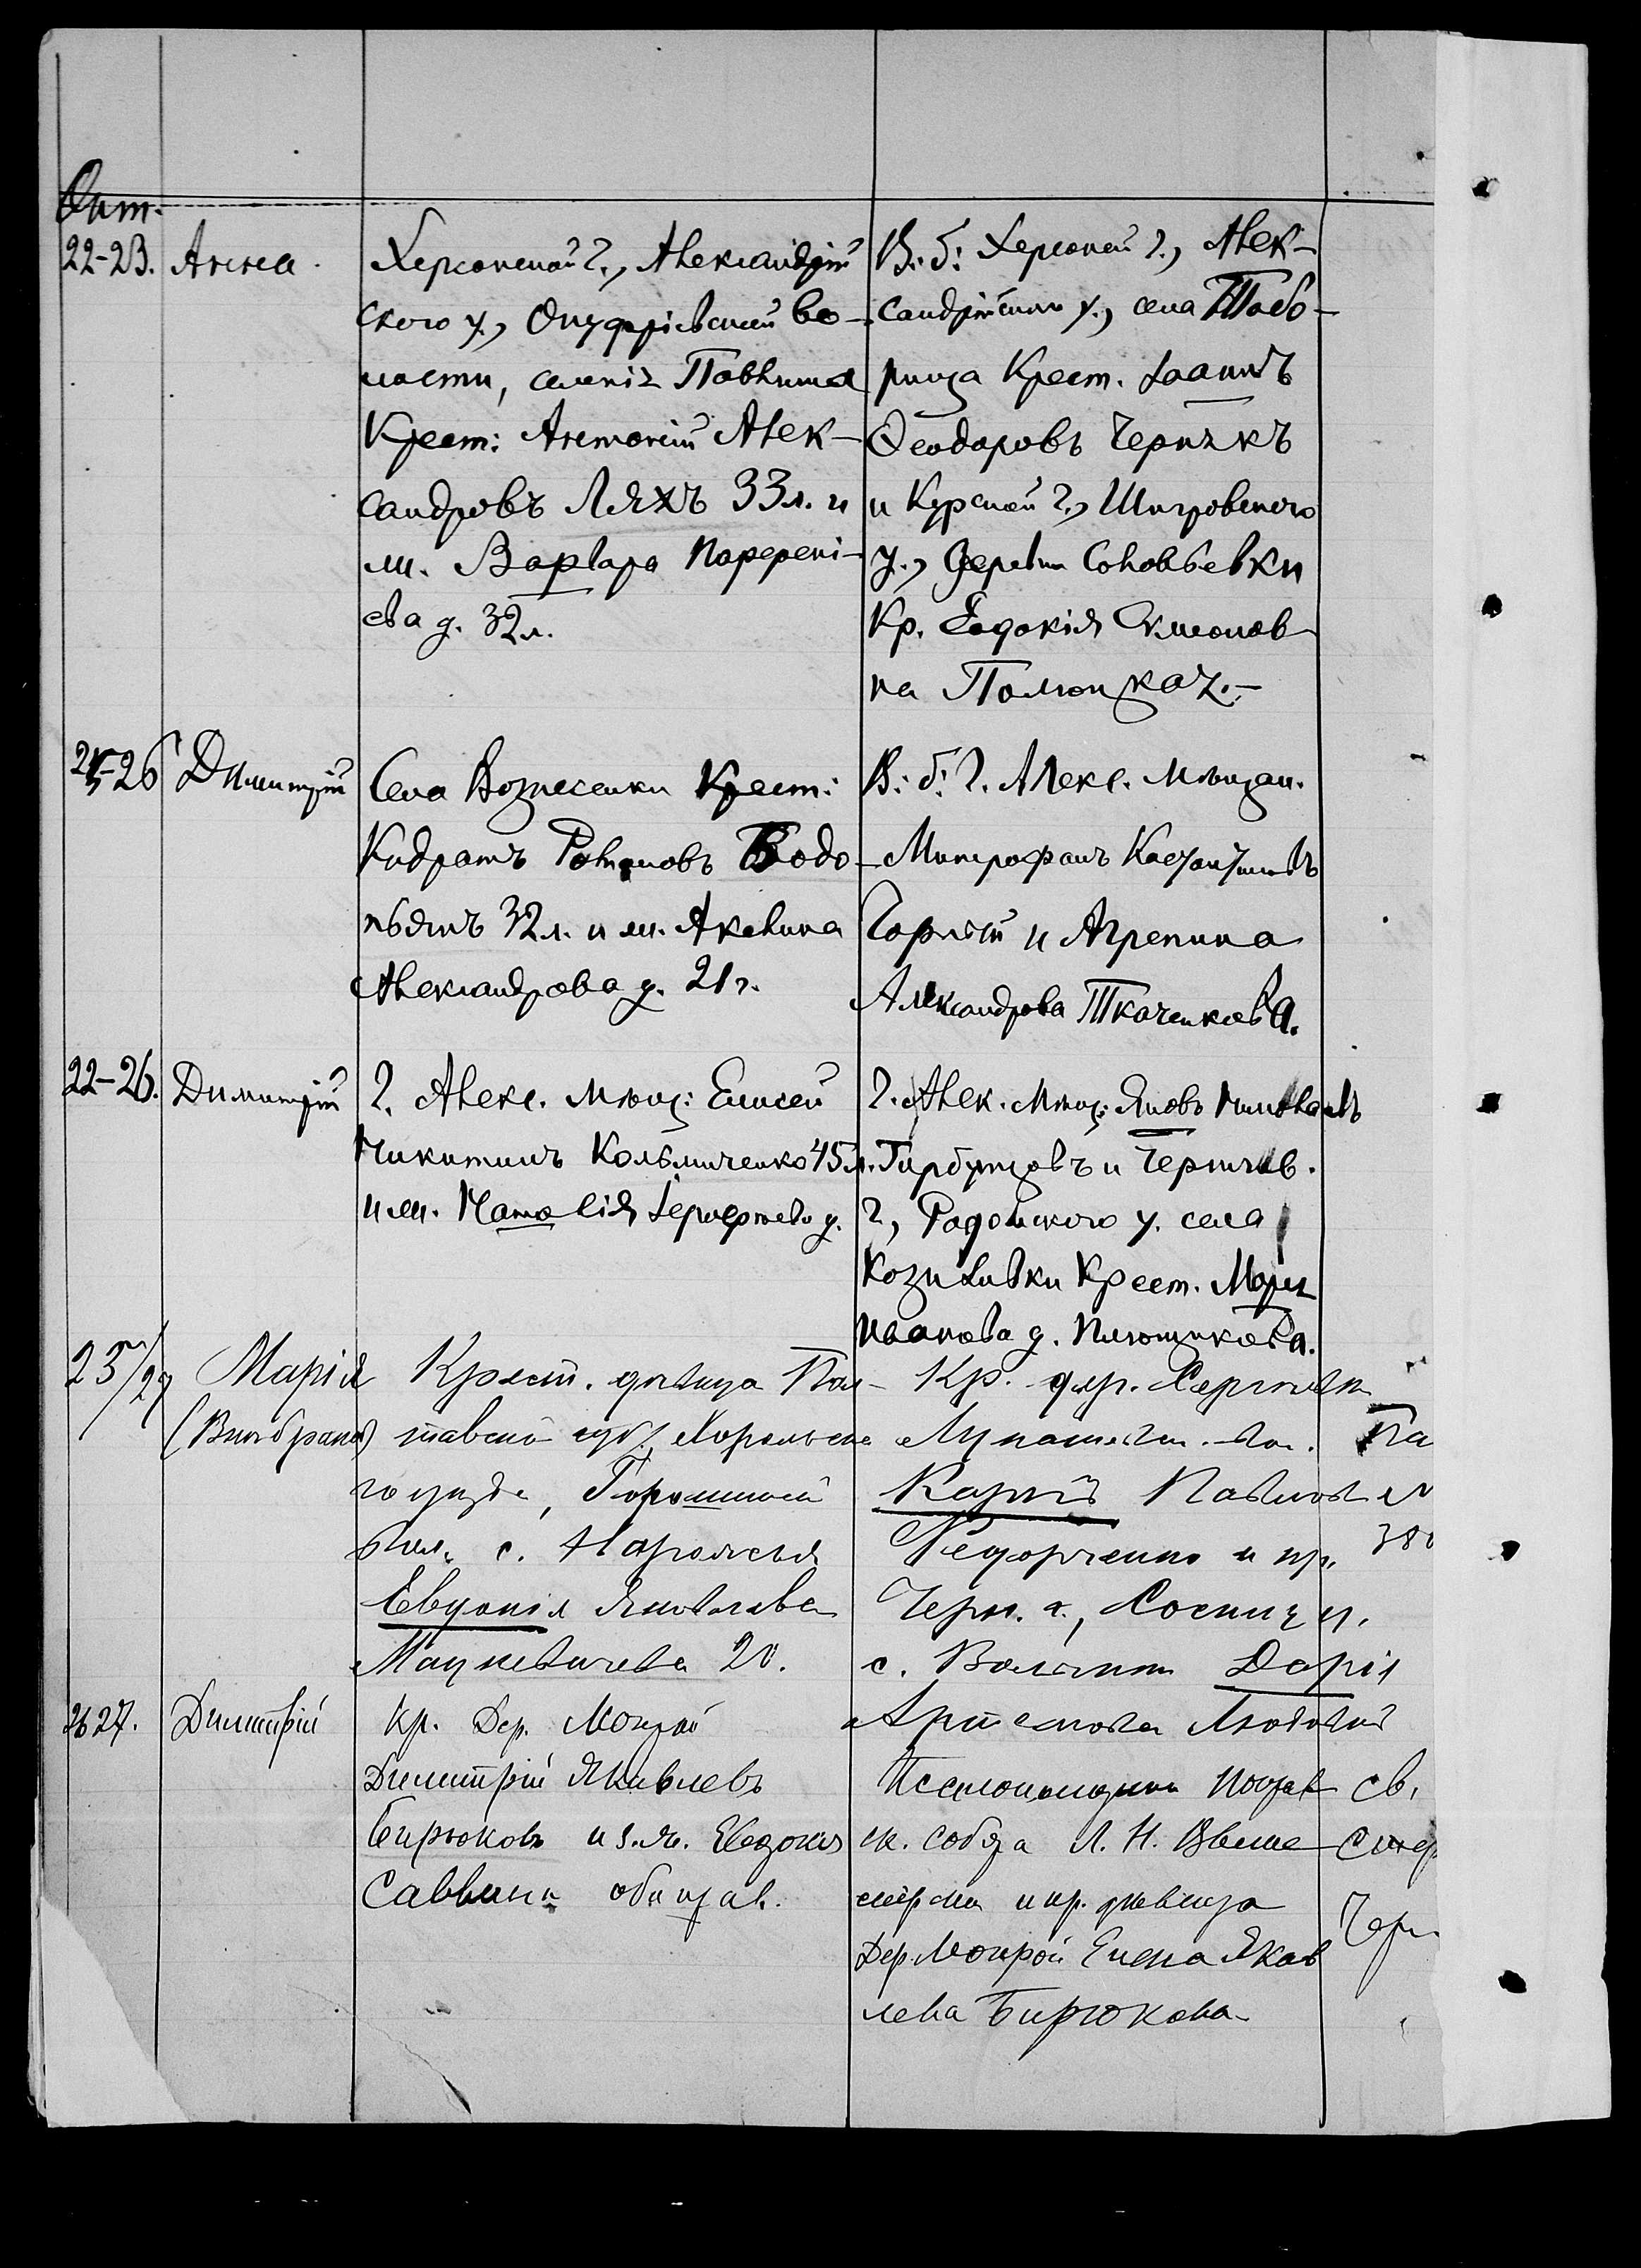 Окт.
22-23. Анна
Херсонской г., Александрій
ского у., Онуфріевской во-
лости, селенія Павлыша
Крест: Антоній Алек-
сандровъ Ляхъ 33 л. и
ж. Варвара Парфені-
ева д. 32 л.
В. б: Херсонской г., Алек-
сандрійскаго у., села Табо-
рища Крест. Іоаннъ
Ѳеодоровъ Чернякъ
и Курской г., Щигровского
у., Деревни Соловьевки
Кр. Евдокія Симеонов
на Полюцкая.-
25-26 Димитрій
Села Вознесенки Крест:
Кодратъ Романовъ Водо-
пьянъ 32 л. и ж. Акилина
Александрова д. 21 г.
В: б: г. Алекс. Мѣщан.
Митрофанъ Констант
Горлій и Агрепина
Александрова Ткаченкова.
22-26. Димитрій
г. Алекс. мѣщ: Елисей
Никитинъ Кольмиченко 45 л.
и ж. Наталія Іерофеева д.
г. Алек. Мѣщ: Яковъ Михайловъ
Гирбутовъ и Чернигов.
г., у. села
Козиловки Крест. Марія
Иванова д. Плющикова.
25/27 Марія
(Внѣбрачн)
Крест. дѣвица Пол-
тавской губ., Хорольска
го уезда, Горошиной
вол. с. Нарожья
Евдокія Яковлева
Мацкевичева 20.
Кр. дер. Сергѣевки
вол.
Карпъ Павлов
Федорченко и кр.
Черн. г., Сосниц у.
с. Волынки Дарія
Артемова Любивая
Па
380
26 27. Димитрій
Кр. Дер. Мокрой
Димитрій Яковлевъ
Бирюковъ и з.ж. Евдокія
Саввина оба прав.
Псаломщикъ Покров
ск. собора Л. Н.
и кр. дѣвица
Дер. Мокрой Елена Яков
лева Бирюкова-
св.
Чер